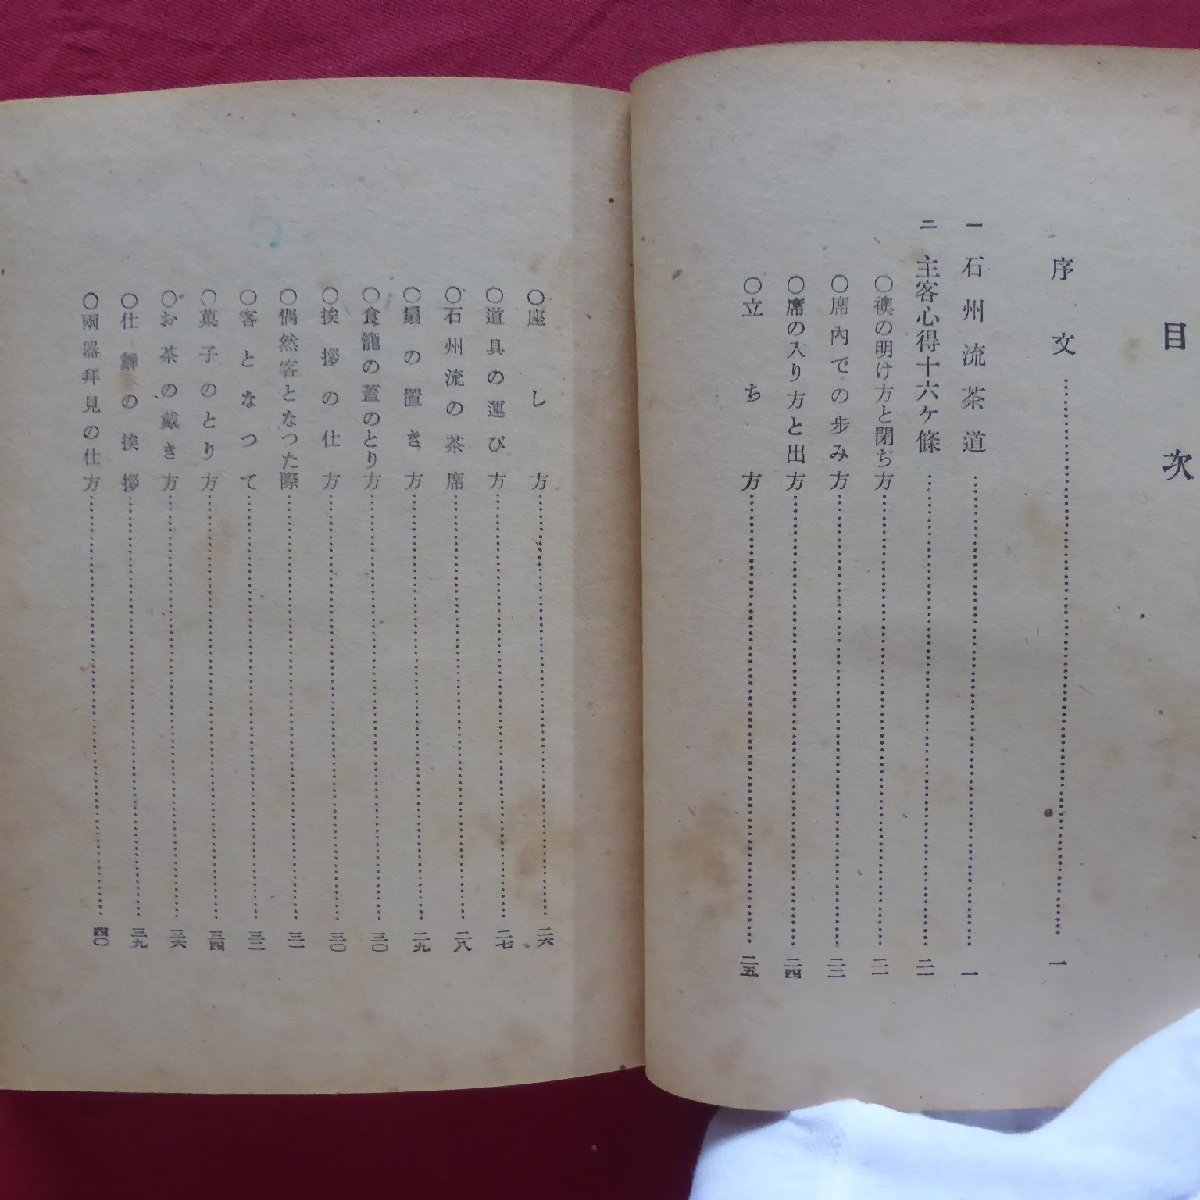 目次
序文……一
一 石州流茶道……一
二 主客心得十六ケ條……二一
○襖の明け方と閉ぢ方……二一
○席內での步み方……二三
○席の入り方と出方……二四
○立ち方……二五
○座し方……二六
○道具の運び方……二七
○石州流の茶席……二八
○扇の置き方……二九
○食籠の蓋のとり方……三〇
○挨拶の仕方……三〇
○偶然客となつた際……三一
○客となつて……三二
○菓子のとり方……三四
○お茶の戴き方……三六
○仕舞の挨拶……三九
○兩器拜見の仕方……四〇